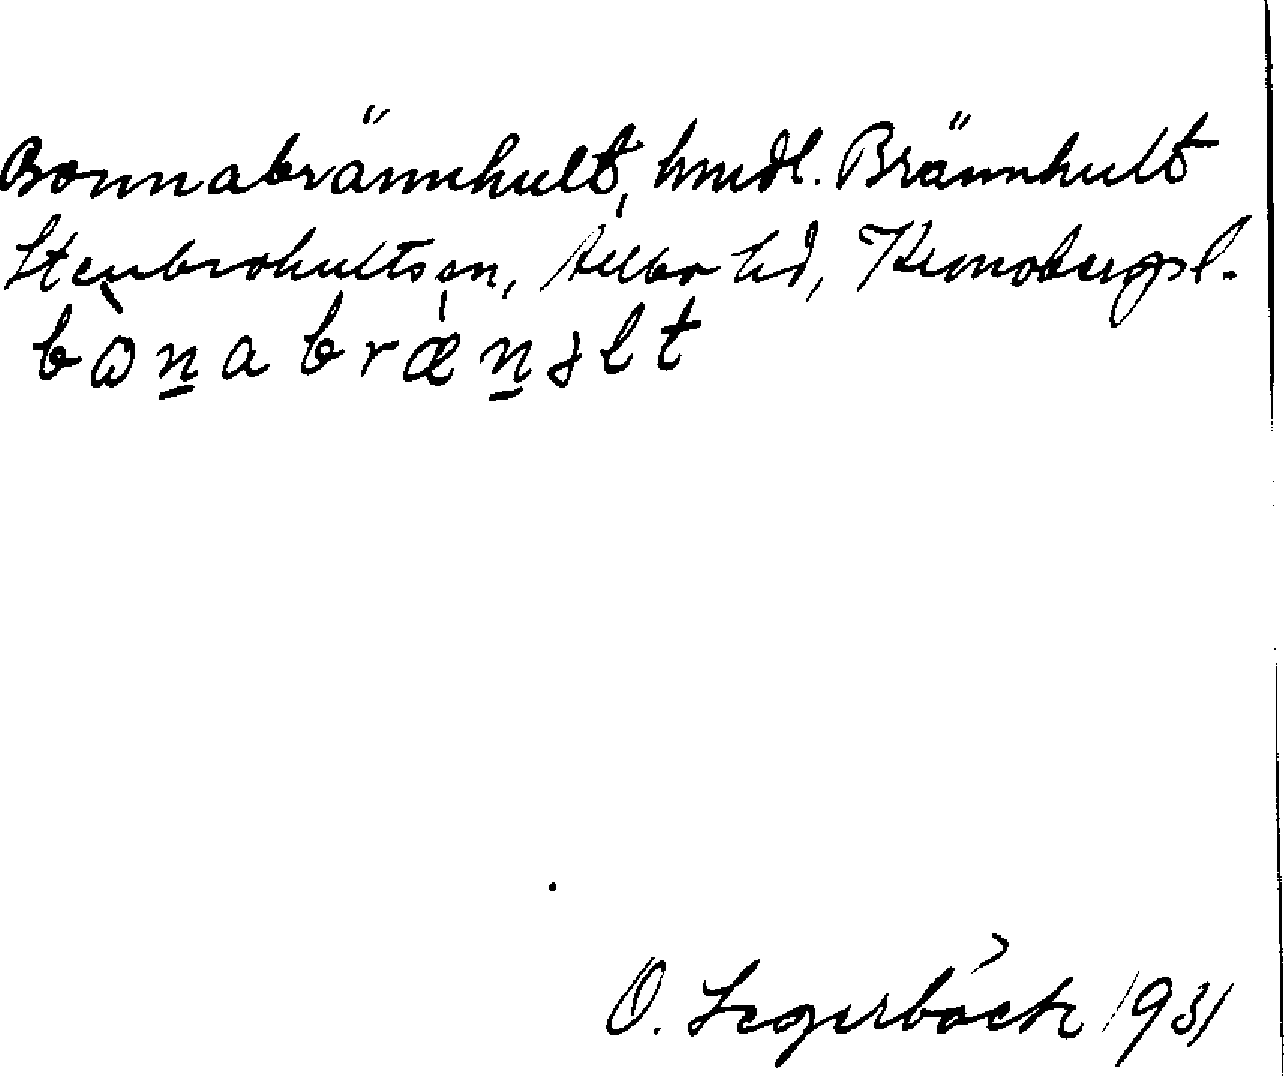 Bonnabrännhult, hmdl. Brännhult
Stenbrohults sn, Allbo hd, Kronobergs l.
bònabrænɘlt
O. Segerbäck 1931